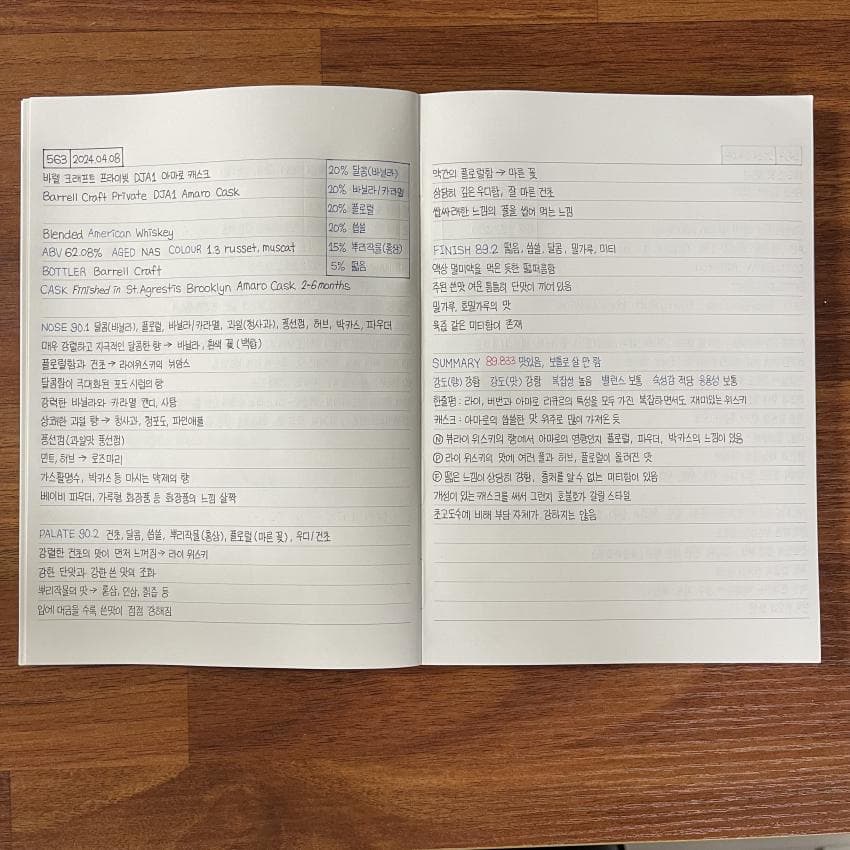 563 2024.04.08
바렐 크래프트 프라이빗 DJA1 아마로 캐스크
Barrell Craft Private DJA1 Amaro Cask
Blended American Whiskey
ABV 62.08% AGED NAS COLOUR 1.3 russet, muscat
BOTTLER Barrell Craft
CASK Finished in St.Agrestis Brooklyn Amaro Cask 2-6months
20% 달콤(바닐라)
20% 바닐라/카라멜
20% 플로럴
20% 씁쓸
15% 뿌리작물(홍삼)
5% 떫음
NOSE 90.1 달콤(바닐라), 플로럴, 바닐라/카라멜, 과일(청사과), 풍선껌, 허브, 박카스, 파우더
매우 강렬하고 자극적인 달콤한 향 → 바닐라, 흰색 꽃 (백합)
플로럴함과 건초 → 라이위스키의 뉘앙스
달콤함이 극대화된 포도 시럽의 향
강력한 바닐라와 카라멜 캔디, 사탕
상쾌한 과일 향 → 청사과, 청포도, 파인애플
풍선껌(과일맛 풍선껌)
민트, 허브 → 로즈마리
가스활명수, 박카스 등 마시는 약제의 향
베이비 파우더, 가루형 화장품 등 화장품의 느낌 살짝
PALATE 90.2 건초, 달콤, 씁쓸, 뿌리작물(홍삼), 플로럴(마른 꽃), 우디/건초
강렬한 건초의 맛이 먼저 느껴짐 → 라이 위스키
강한 단맛과 강한 쓴 맛의 조화
뿌리작물의 맛 → 홍삼, 인삼, 칡즙 등
입에 머금을 수록 쓴맛이 점점 강해짐
약간의 플로럴함 → 마른 꽃
상당히 깊은 우디함, 잘 마른 건초
쌉싸래한 느낌의 풀을 씹어 먹는 느낌
FINISH 89.2 떫음, 씁쓸, 달콤, 밀가루, 미티
액상 멀미약을 먹은 듯한 떨떠름함
주된 쓴맛 여운 틈틈히 단맛이 끼어 있음
밀가루, 호밀가루의 맛
육즙 같은 미티함이 존재
SUMMARY 89.833 맛있음, 보틀로 살 만 함
강도(향) 강함 강도(맛) 강함 복잡성 높음 밸런스 보통 숙성감 적당 음용성 보통
한줄평 : 라이, 버번과 아마로 리큐르의 특성을 모두 가진 복잡하면서도 재미있는 위스키
캐스크 : 아마로의 씁쓸한 맛 위주로 많이 가져온 듯
Ⓝ 뷰라이 위스키의 향에서 아마로의 영향인지 플로럴, 파우더, 박카스의 느낌이 있음
Ⓟ 라이 위스키의 맛에 여러 풀과 허브, 플로럴이 올려진 맛
Ⓕ 떫은 느낌이 상당히 강함, 출처를 알 수 없는 미티함이 있음
개성이 있는 캐스크를 써서 그런지 호불호가 갈릴 스타일
초고도수에 비해 부담 자체가 강하지는 않음